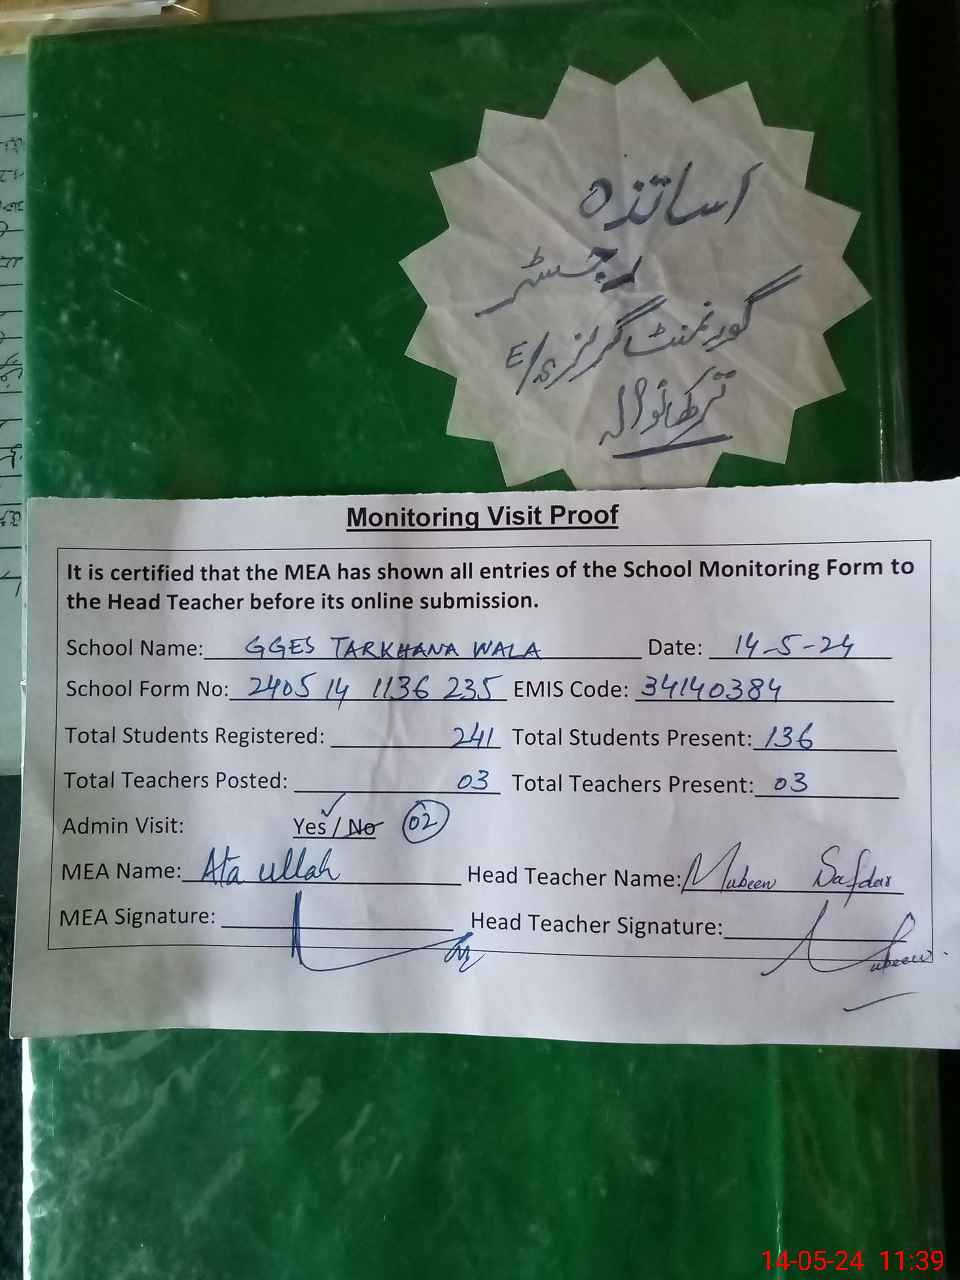 اساتذہ
رجسٹر
گورنمنٹ گرلز E/
ترکھانوالہ
Monitoring Visit Proof
It is certified that the MEA has shown all entries of the School Monitoring Form to
the Head Teacher before its online submission.
School Name: GGES TARKHANA WALA Date: 14-5-24
School Form No: 2405 14 1136 235 EMIS Code: 34140384
Total Students Registered: 241 Total Students Present: 136
Total Teachers Posted: 03 Total Teachers Present: 03
Admin Visit: Yes / No 02
MEA Name: Ata ullah Head Teacher Name: Mubeen Safdar
MEA Signature: Head Teacher Signature: Mubeen
14-05-24 11:39